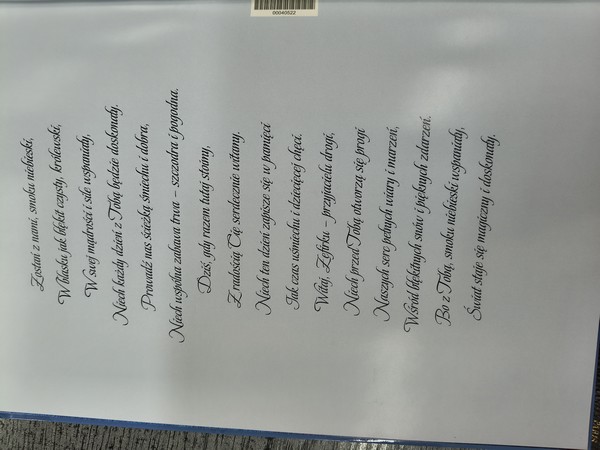 00040522
Zostań z nami, smoku niebieski,
W blasku jak błękit czysty, królewski,
W swej mądrości i sile wspaniały,
Niech każdy dzień z Tobą będzie doskonały.
Prowadź nas ścieżką śmiechu i dobra,
Niech wspólna zabawa trwa – szczodra i pogodna.
Dziś, gdy razem tutaj stoimy,
Z radością Cię serdecznie witamy.
Niech ten dzień zapisze się w pamięci
Jak czas uśmiechu i dziecięcej chęci.
Witaj, Zefirku – przyjacielu drogi,
Niech przed Tobą otworzą się progi
Naszych serc pełnych wiary i marzeń,
Wśród błękitnych snów i pięknych zdarzeń.
Bo z Tobą, smoku niebieski wspaniały,
Świat staje się magiczny i doskonały.